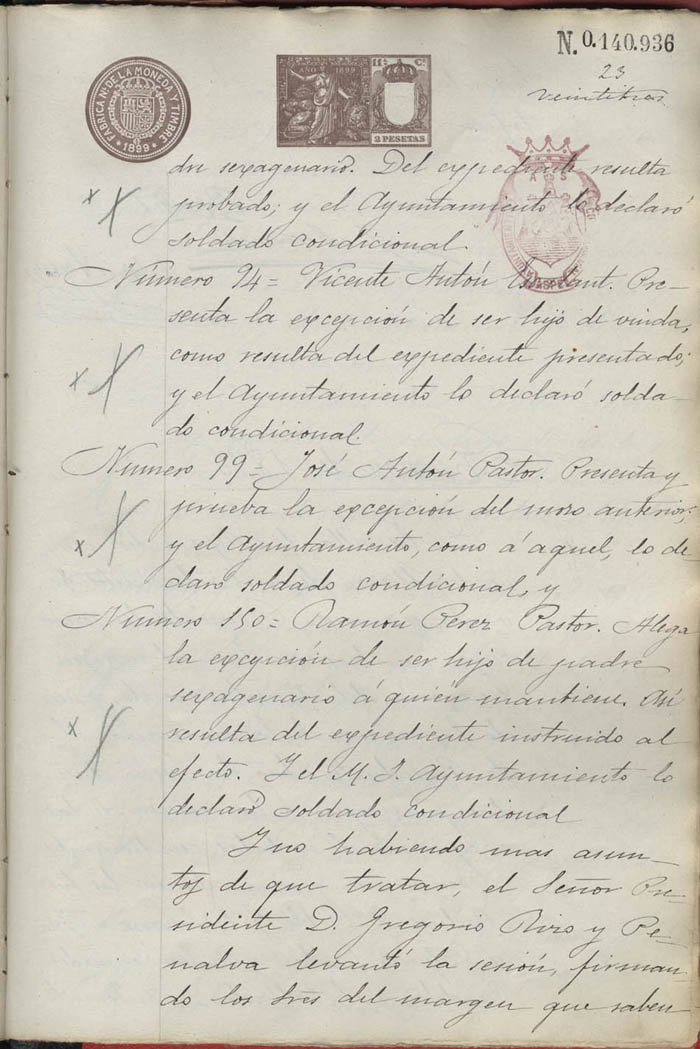 N. 0.140.936
23
veintitres
FABRICA Nal DE LA MONEDA Y TIMBRE
1899
AÑO 1899
11ª Cª
2 PESETAS
dre sexagenario. Del expediente resulta
probado; y el Ayuntamiento lo declaró
soldado condicional.
Número 94 = Vicente Antón. Pre-
senta la excepción de ser hijo de viuda,
como resulta del expediente presentado;
y el Ayuntamiento lo declaró solda-
do condicional.
Número 99 = José Antón Pastor. Presenta y
prueba la excepción del mozo anterior;
y el Ayuntamiento, como á aquel, lo de-
claró soldado condicional, y
Número 150 = Ramón Perez Pastor. Alega
la excepción de ser hijo de padre
sexagenario á quién mantiene. Así
resulta del expediente instruido al
efecto. Y el M. I. Ayuntamiento lo
declaró soldado condicional
Y no habiendo mas asun-
tos de que tratar, el Señor Pre-
sidente D. Gregorio Rizo y Pe-
nalva levantó la sesión, firman-
do los Sres del margen que saben